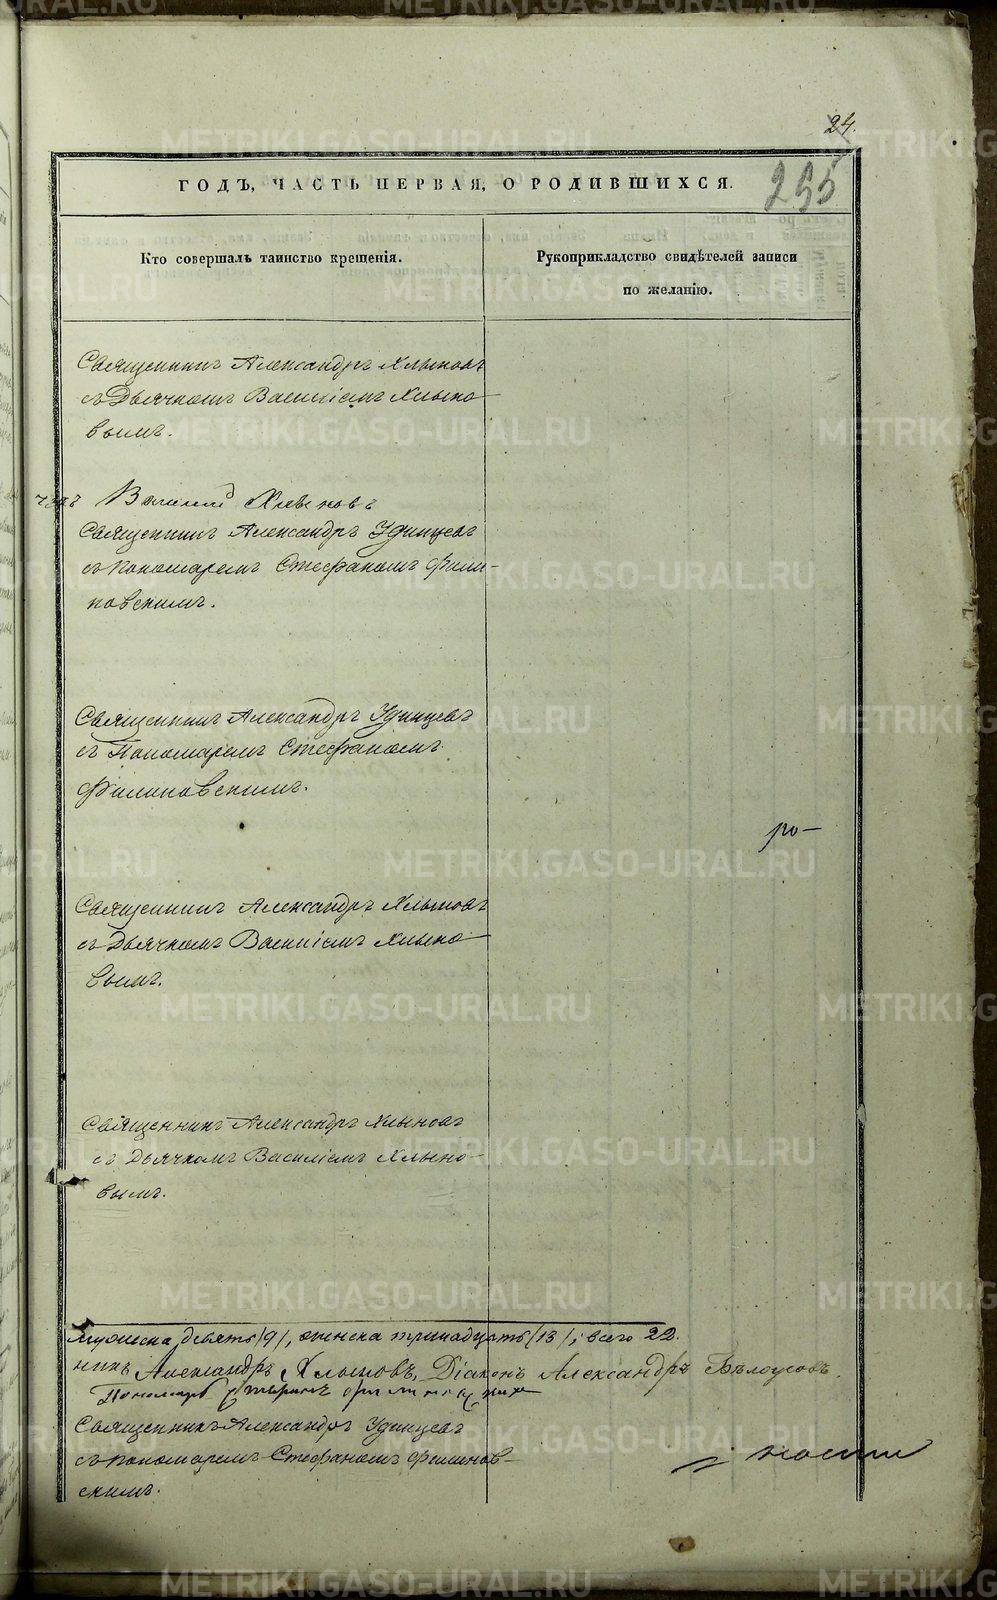 24.
255
ГОДЪ, ЧАСТЬ ПЕРВАЯ, О РОДИВШИХСЯ.
Кто совершалъ таинство крещенія.
Рукоприкладство свидѣтелей записи
по желанію.
Священникъ Александръ Хлыновъ
съ Дьячкомъ Василіемъ Хлыно-
вымъ.
Василій Хлыновъ
Священникъ Александръ Удинцевъ
съ пономаремъ Стефаномъ Фили-
новскимъ.
Священникъ Александръ Удинцевъ
съ Пономаремъ Стефаномъ
Филиновскимъ.
ро-
Священникъ Александръ Хлыновъ
съ Дьячкомъ Василіемъ Хлыно-
вымъ.
Священникъ Александръ Хлыновъ
съ Дьячкомъ Василіемъ Хлыно-
вымъ.
мужеска девять /9/, женска тринадцать /13/; всего 22.
никъ Александръ Хлыновъ, Діаконъ Александръ Бѣлоусовъ.
Пономарь Стефанъ Филиновскихъ
Священникъ Александръ Удинцевъ
съ пономаремъ Стефаномъ Филинов-
скимъ.
METRIKI.GASO-URAL.RU